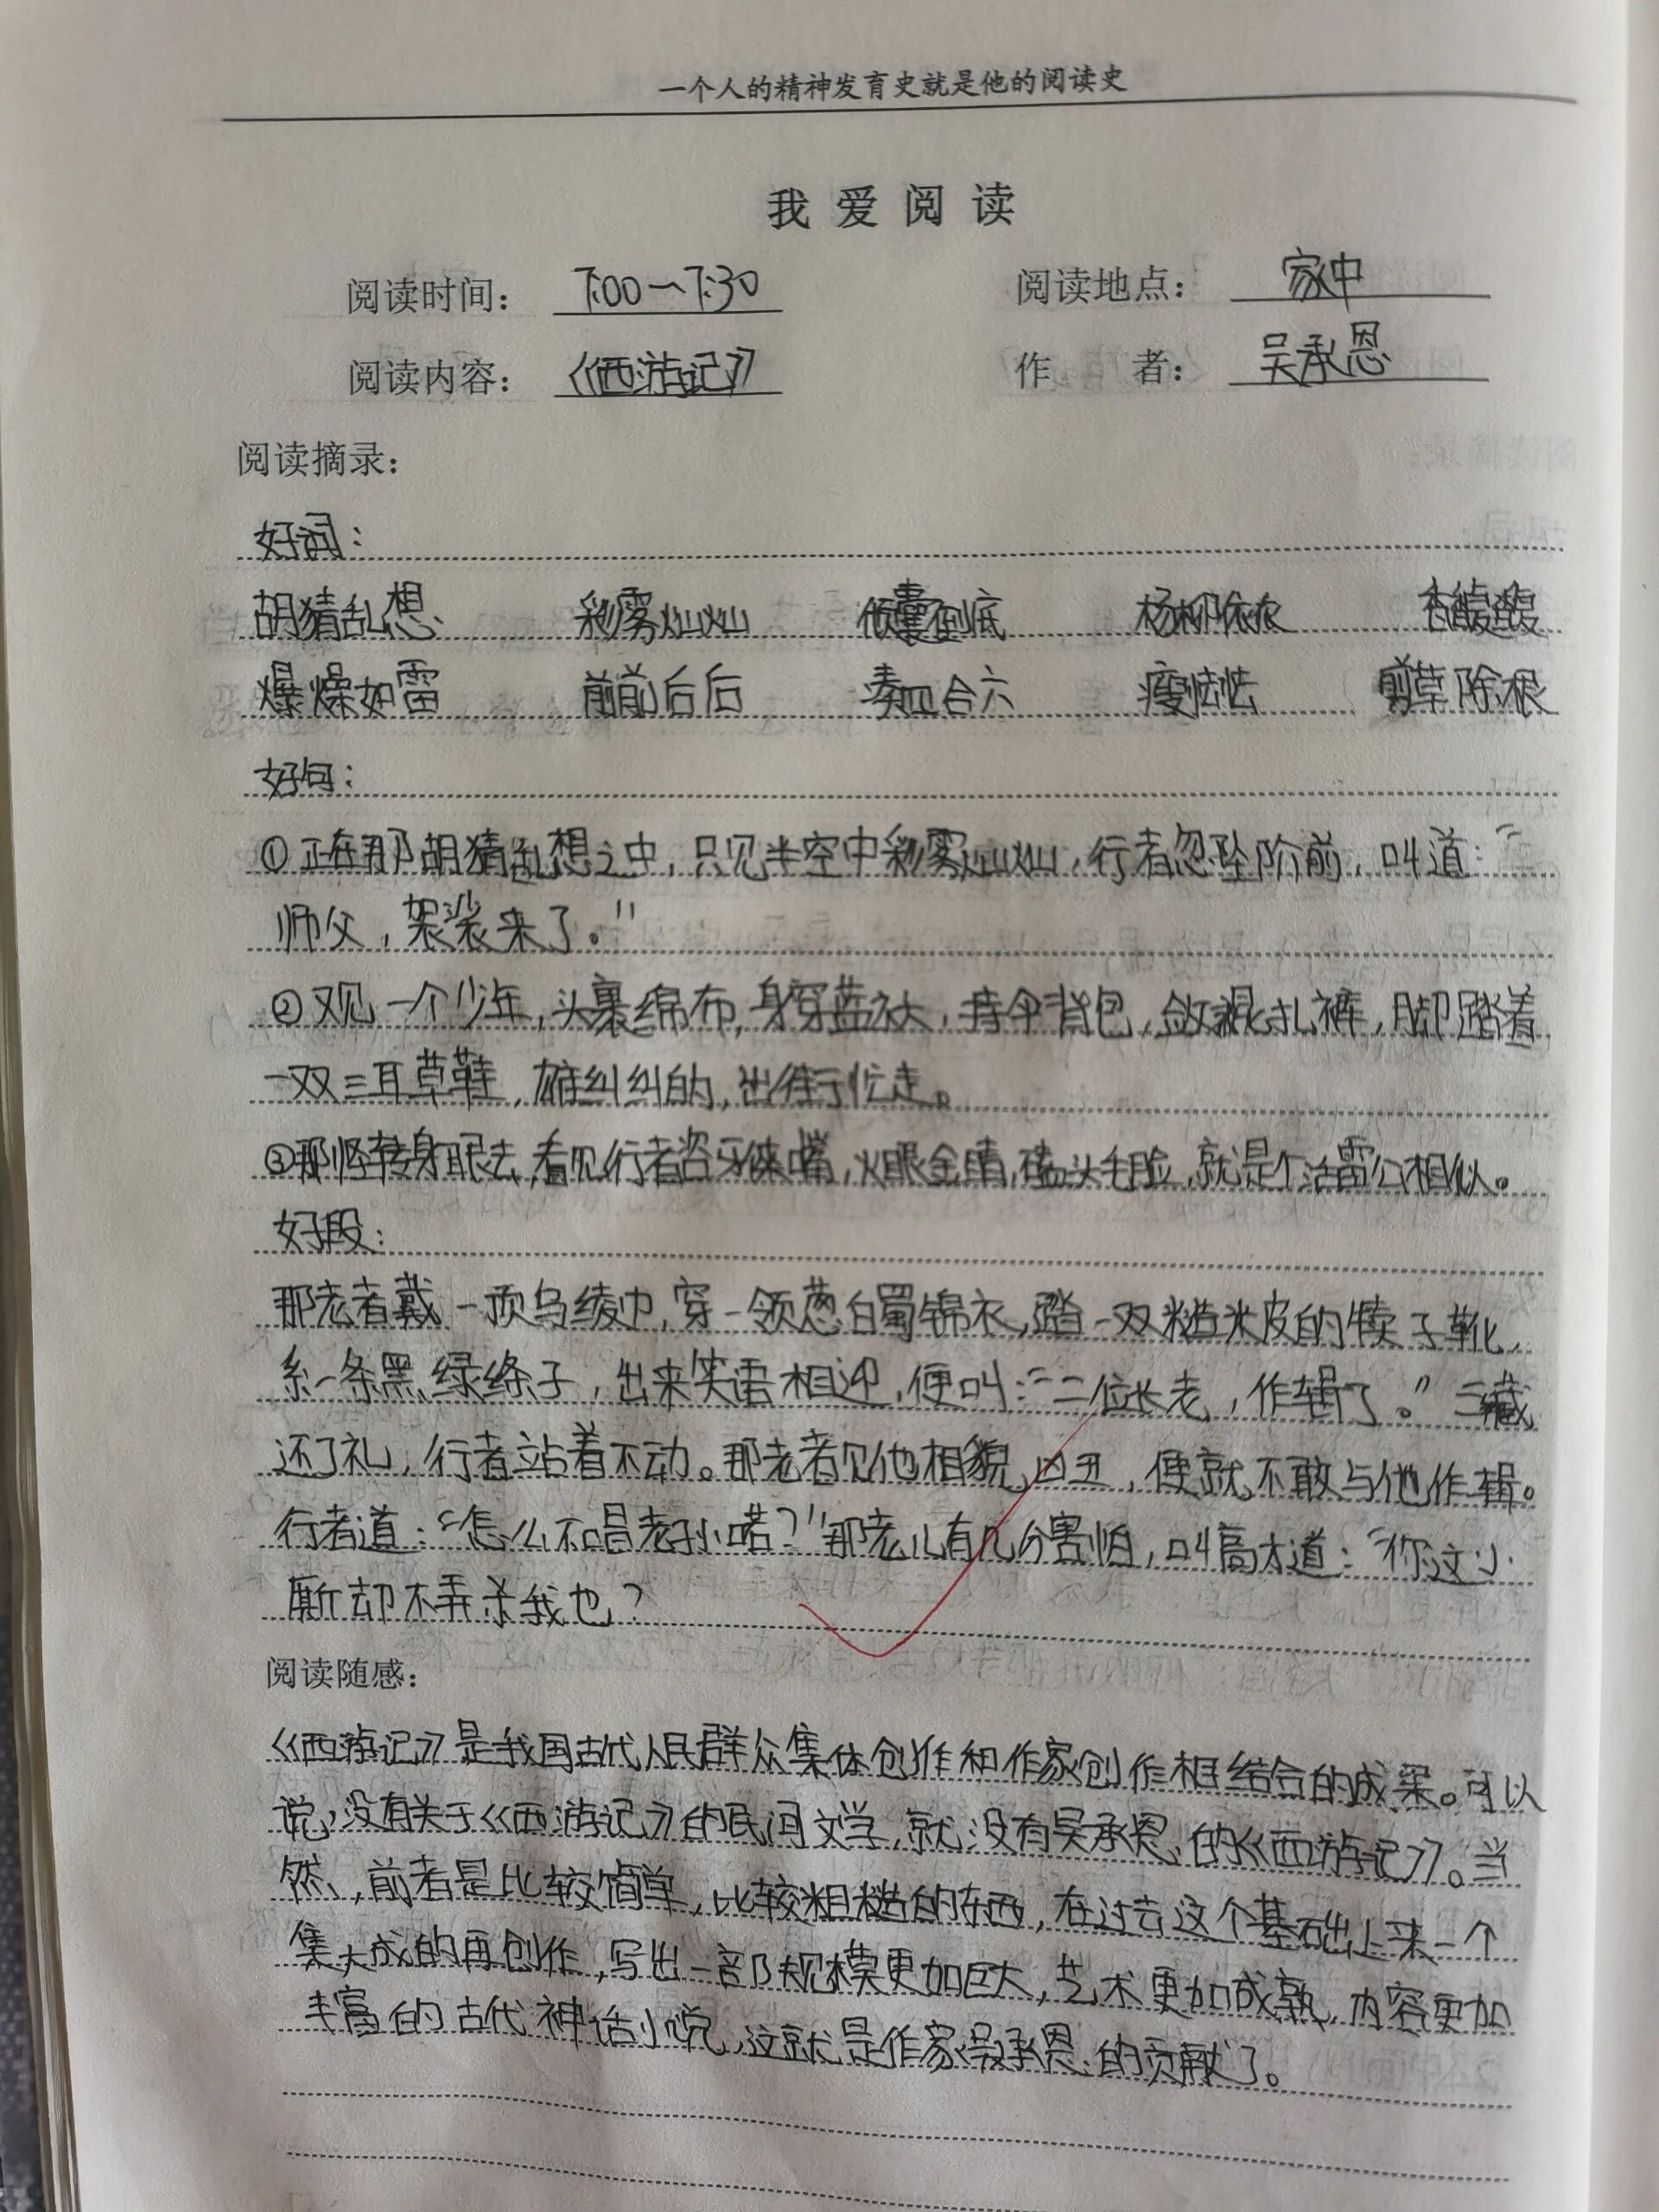 一个人的精神发育史就是他的阅读史
我爱阅读
阅读时间： 7:00—7:30 阅读地点： 家中
阅读内容： 《西游记》 作者： 吴承恩
阅读摘录：
好词：
胡猜乱想 彩雾灿灿 倾囊倒底 杨柳依依
爆燥如雷 前前后后 凑四合六 瘦怯怯 剪草除根
好句：
①正在那胡猜乱想之中，只见半空中彩雾灿灿，行者忽坠阶前，叫道：“
师父，袈裟来了。”
②又见一个少年，头裹绵布，身穿蓝衣，持伞背包，敛裩扎裤，脚踏着
一双三耳草鞋，雄纠纠的，出街忙走。
③那怪转身眼去，看见行者咨牙俫嘴，火眼金睛，磕头毛脸，就是个活雷公相似。
好段：
那老者戴一顶乌绫巾，穿一领葱白蜀锦衣，踏一双糙米皮的犊子靴，
系一条黑绿绦子，出来笑语相迎，便叫：“二位长老，作辑了。”三藏
还了礼，行者站着不动。那老者见他相貌凶丑，便就不敢与他作辑。
行者道：“怎么不唱老孙喏？”那老儿有几分害怕，叫高才道：“你这小
厮却不弄杀我也？
阅读随感：
《西游记》是我国古代人民群众集体创作和作家创作相结合的成果。可以
说，没有关于《西游记》的民间文学，就没有吴承恩的《西游记》。当
然，前者是比较简单，比较粗糙的东西，在过去这个基础上来一个
集大成的再创作，写出一部规模更加巨大，艺术更加成熟，内容更加
丰富的古代神话小说，这就是作家吴承恩的贡献了。